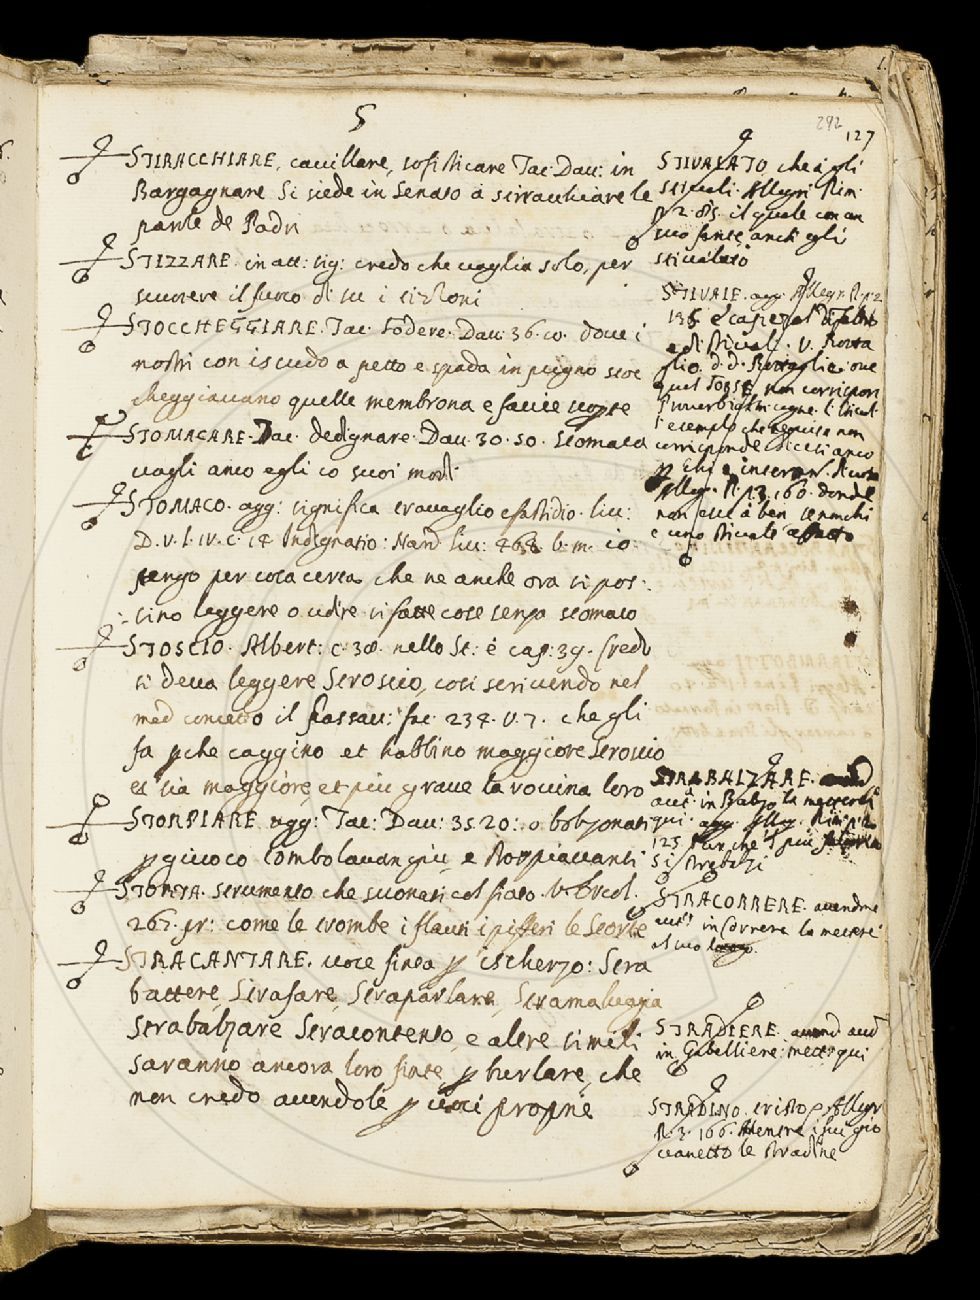 S
292
127
STIRACCHIARE, cavillare, sofisticare Tac: Dav: in
Bargagnare Si siede in Senato à stiracchiare le
parole de Padri
STIZZARE. in att: sig: credo che voglia solo, per
muovere il fuoco di su i tizzoni
STOCCHEGGIARE. Tac: fodere. Dav: 36. 10. dove i
nostri con iscudo a petto e spada in pugno stoc
cheggiavano quelle membrona e faccie scoperte
STOMACARE. Tac. dedignare. Dav. 30. 50. stomaca
vagli anco egli co suoi modi
STOMACO. agg: significa travaglio e fastidio. Liv:
D. V. l. IV. c. 14 Indignatio: Nard Liv: 468 b. m. io
tengo per cosa certa che ne anche ora si pos:
sino leggere o udire si fatte cose senza stomaco
STOSCIO. Albert: c. 38. nello St: è cap: 39. Credo
si deva leggere Stroscio, così scrivendo nel
med concetto il Passav: fac. 234. v. 7. che gli
fa perche caggino et habbino maggiore stroscio
et sia maggiore, et più grave la rovina loro
STORPIARE. agg: Tac: Dav: 35. 20:
p giuoco tombolavan giù, e storpiavansi
STORTA. strumento che suonasi col fiato.
267. pr: come le trombe i flauti i pifferi le Storte
STRACANTARE. voce finta p ischerzo: Stra
battere, Strafare, Straparlare, Stramaluggia
Strabalzare Stracontento, e altre simili
saranno ancora loro finte p burlare, che
non credo avendole p voci proprie
STIVALATO che à gli
stivali. Allegri Rim.
p 2. 85. il quale con un
suo fante, anch egli
stivalato
STIVALE. agg: Allegri R. p. 2
136
di Stivali. V. Rotta
glio.
quel TORSE, non corrispon
l esempio che seguita non
corrisponde
Alleg. R. p 3. 160. donde
non
e uno stivale affatto
STRABALZARE.
avd: in Balzo la mettersi
qui. agg. Alleg. Rim. p 2.
123. fun che l più
si strabalzi
STRACORRERE. avendone
avd: in Correre la mettere
al suo luogo.
STRADIERE. avend avd
in Gabelliere: metter qui
STRADINO. tristo p Allegr
R. 3. 166. Mentre i fu gio
vanetto le stradine